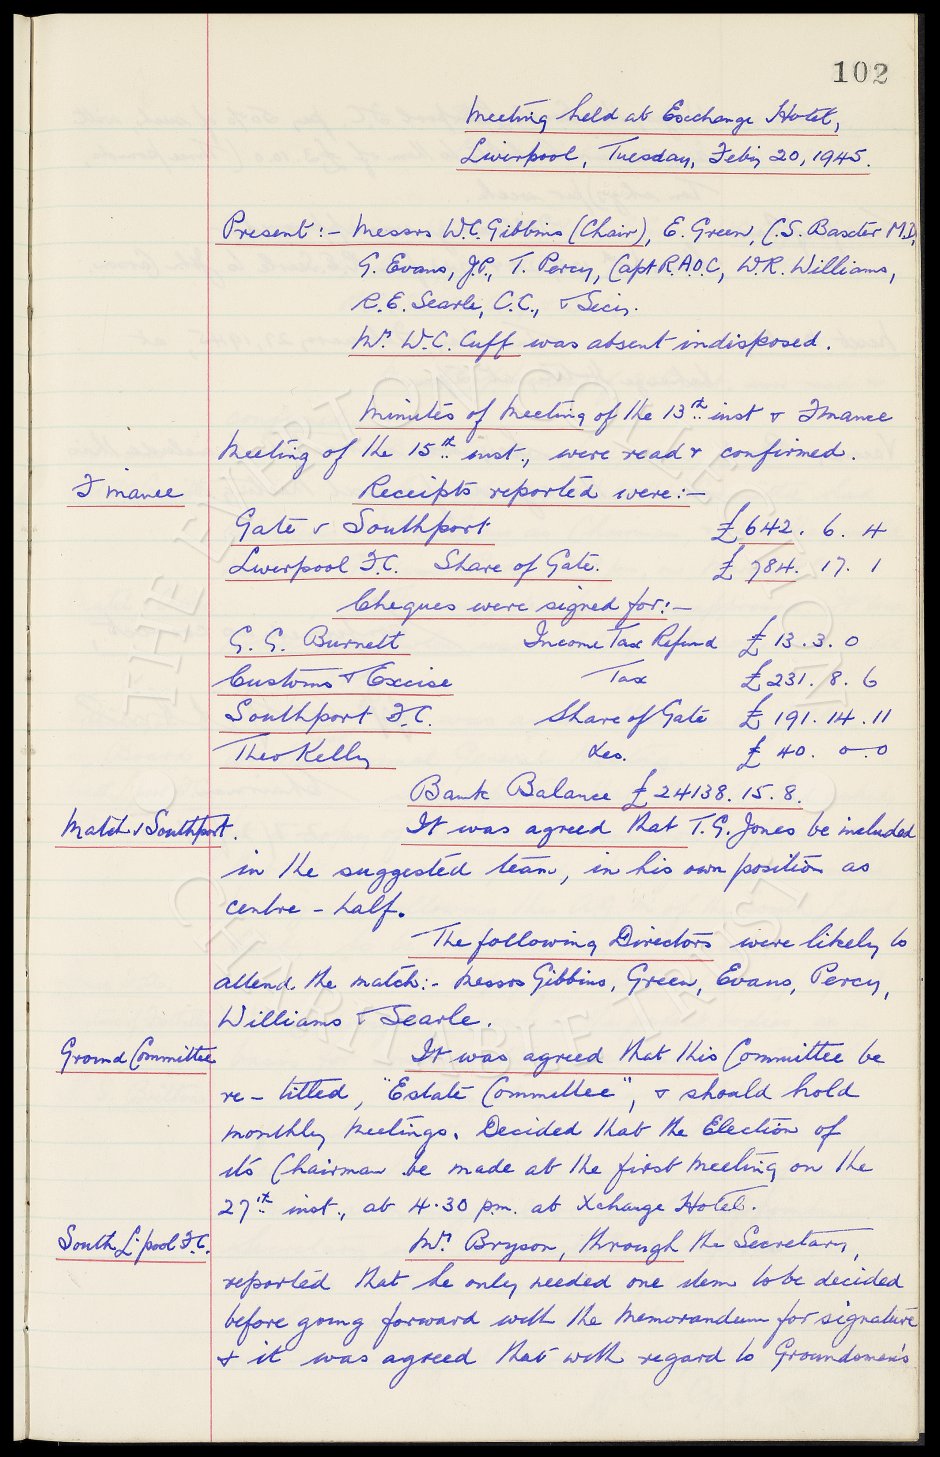 102
Meeting held at Exchange Hotel,
Liverpool, Tuesday, Feb'y 20, 1945.
Present:- Messrs W.C. Gibbins (Chair), E. Green, C.S. Baxter M.D,
G. Evans, J.P., T. Percy, Capt R.A.O.C, W.R. Williams,
R.E. Searle, C.C., & Sec'y.
Mr. W.C. Cuff was absent indisposed.
Minutes of Meeting of the 13th inst & Finance
Meeting of the 15th inst., were read & confirmed.
Finance Receipts reported were:-
Gate v Southport £642. 6. 4
Liverpool F.C. Share of Gate. £784. 17. 1
Cheques were signed for:-
G. G. Burnett Income Tax Refund £13. 3. 0
Customs & Excise Tax £231. 8. 6
Southport F.C. Share of Gate £191. 14. 11
Theo Kelly Xes. £40. 0-0
Bank Balance £24138. 15. 8.
Match v Southport. It was agreed that T.G. Jones be included
in the suggested team, in his own position as
centre-half.
The following Directors were likely to
attend the match:- Messrs Gibbins, Green, Evans, Percy,
Williams & Searle.
Ground Committee It was agreed that this Committee be
re-titled, "Estate Committee", & should hold
monthly meetings. Decided that the Election of
it's Chairman be made at the first meeting on the
27th inst., at 4.30 p.m. at Xchange Hotel.
South L'pool F.C. Mr. Bryson, through the Secretary,
reported that he only needed one item to be decided
before going forward with the Memorandum for signature
& it was agreed that with regard to Groundsmen's
THE EVERTON COLLECTION
CHARITABLE TRUST